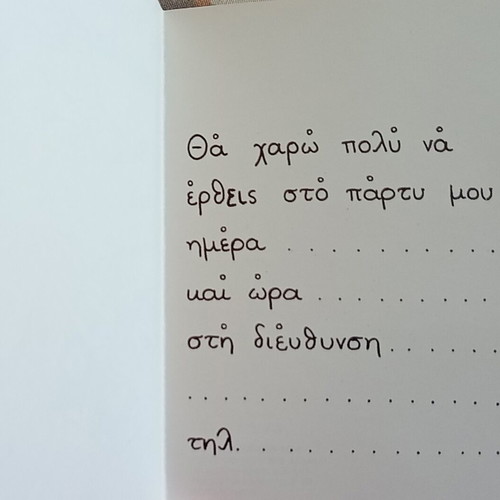 Θά χαρώ πολύ νά
έρθεις στό πάρτυ μου
ημέρα . . . . . . . . . .
καί ώρα . . . . . . . . .
στή διεύθυνση . . . . . .
. . . . . . . . . . . . . . . .
τηλ. . . . . . . . . . . . .